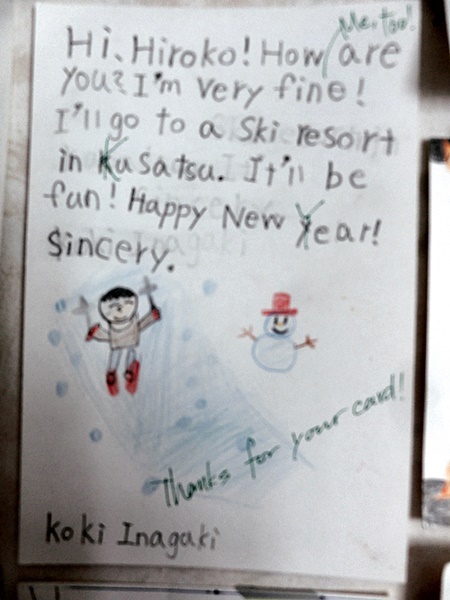 Me, too!
Hi, Hiroko! How are
you? I'm very fine!
I'll go to a Ski resort
in Kusatsu. It'll be
fun! Happy New Year!
Sincery.
Thanks for your card!
koki Inagaki